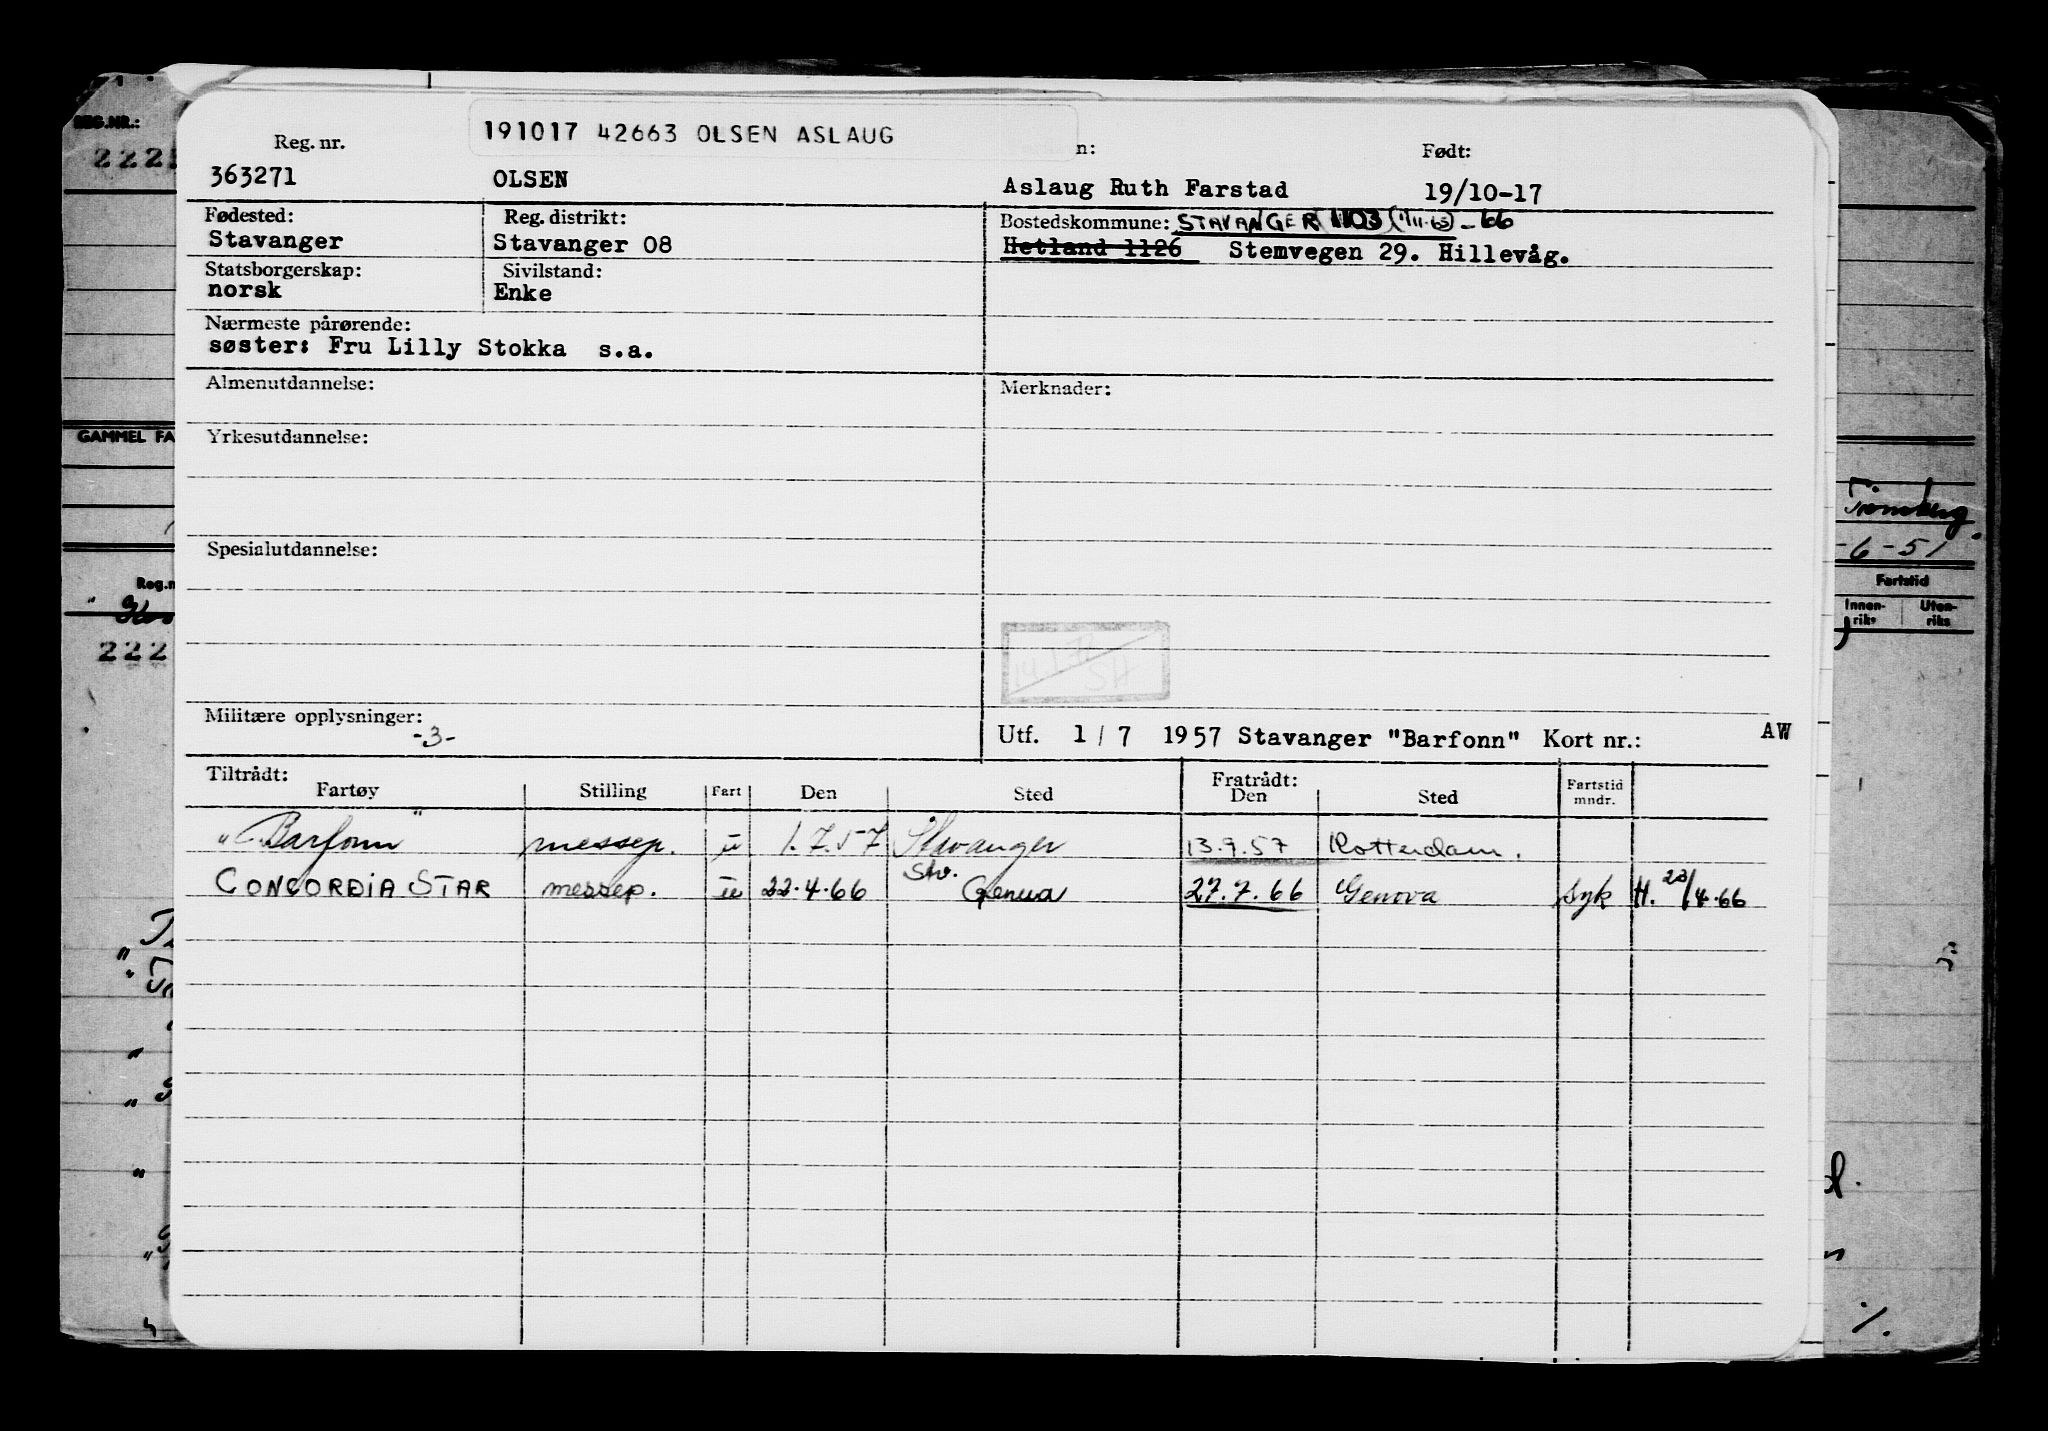 191017 42663 OLSEN ASLAUG
Reg. nr. n: Født:
363271 OLSEN Aslaug Ruth Farstad 19/10-17
Fødested: Reg. distrikt: Bostedskommune: STAVANGER 1103 (1/11.65) - 66
Stavanger Stavanger 08 Hetland 1126 Stemvegen 29. Hillevåg.
Statsborgerskap: Sivilstand:
norsk Enke
Nærmeste pårørende:
søster: Fru Lilly Stokka s.a.
Almenutdannelse: Merknader:
Yrkesutdannelse:
Spesialutdannelse:
SH
Militære opplysninger:
-3-
Utf. 1/7 1957 Stavanger "Barfonn" Kort nr.: AW
Tiltrådt: Fratrådt:
Fartøy Stilling Fart Den Sted Den Sted Fartstid mndr.
"Barfonn" messep. u 1.7.57 Stavanger 13.9.57 Rotterdam.
CONCORDIA STAR messep. u 22.4.66 Stv. Genua 27.7.66 Genova syk H. 23/4.66
REG.NR.:
222
GAMMEL FA
Reg.n
222
Tromberg
-6-51
Fartstid
Innen-riks Uten-riks